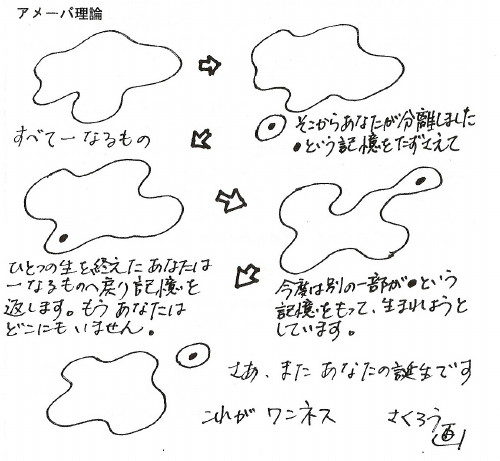 アメーバ理論
すべて一なるもの
そこからあなたが分離しました
●という記憶をたずさえて
ひとつの生を終えたあなたは
一なるものへ戻り記憶を
返します。もうあなたは
どこにもいません。
今度は別の一部が●という
記憶をもって、生まれようと
しています。
さあ、また あなたの誕生です
これが ワンネス さくろう画